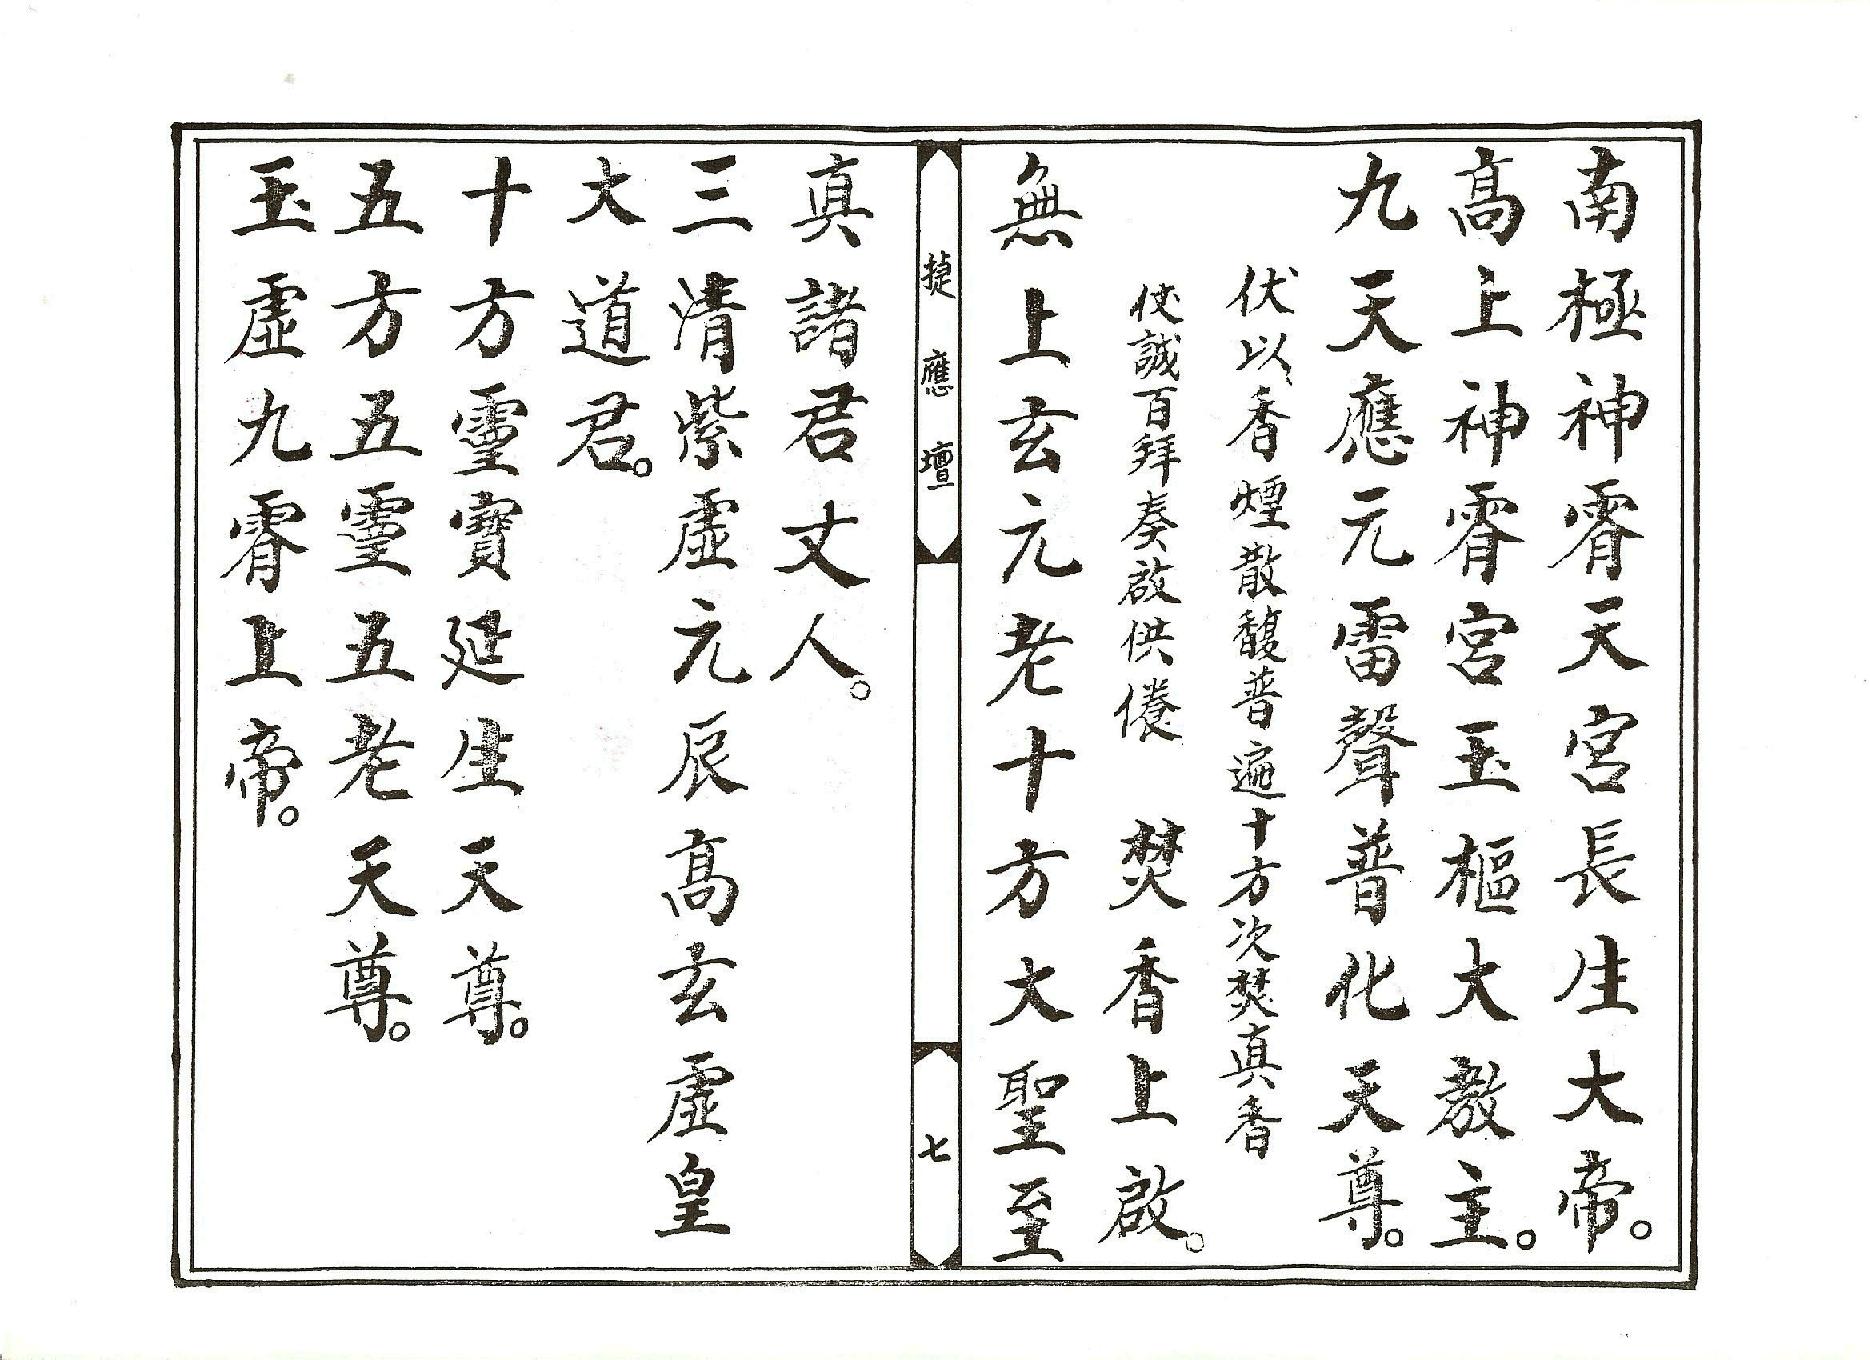 南極神霄天宮長生大帝。
高上神霄宮玉樞大教主。
九天應元雷聲普化天尊。
伏以香煙散馥普遍十方次焚真香
伩誠百拜奏啟供養 焚香上啟。
無上玄元老十方大聖至
捷應壇
七
真諸君丈人。
三清紫虛元辰高玄虛皇
大道君。
十方靈寶延生天尊。
五方五靈五老天尊。
玉虛九霄上帝。